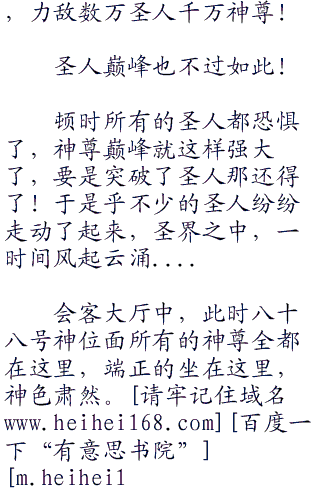 ，力敌数万圣人千万神尊！
圣人巅峰也不过如此！
顿时所有的圣人都恐惧
了，神尊巅峰就这样强大
了，要是突破了圣人那还得
了！于是乎不少的圣人纷纷
走动了起来，圣界之中，一
时间风起云涌....
会客大厅中，此时八十
八号神位面所有的神尊全都
在这里，端正的坐在这里，
神色肃然。[请牢记住域名
www.heihei168.com][百度一
下“有意思书院”]
[m.heihei1